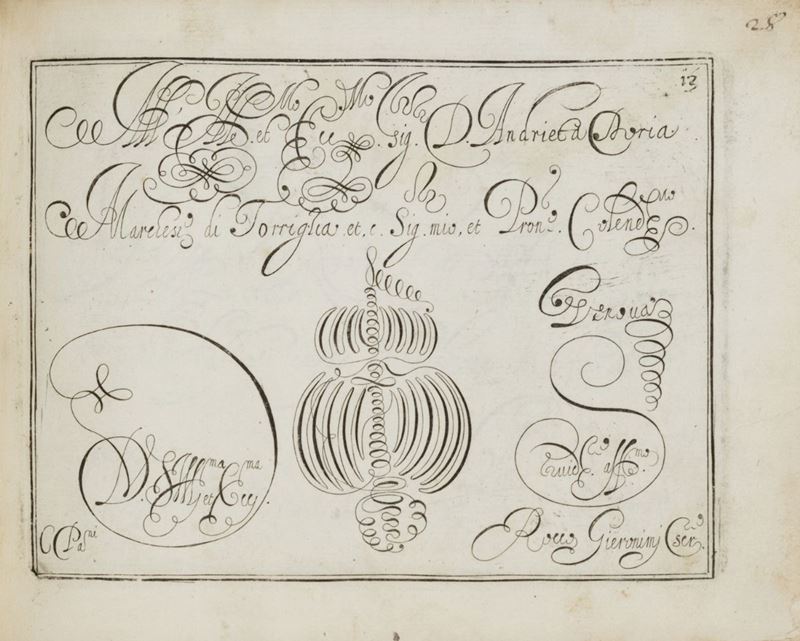 28
13
All.^mo et Ecc.^mo Sig. D. Andrietta Doria
Marchese di Torriglia et.c. Sig. mio, et Pron. Colend.^mo
Genova
D. S. Ill^ma et Ecc^ma.
aff^mo
Rocco Gieronimi scr.